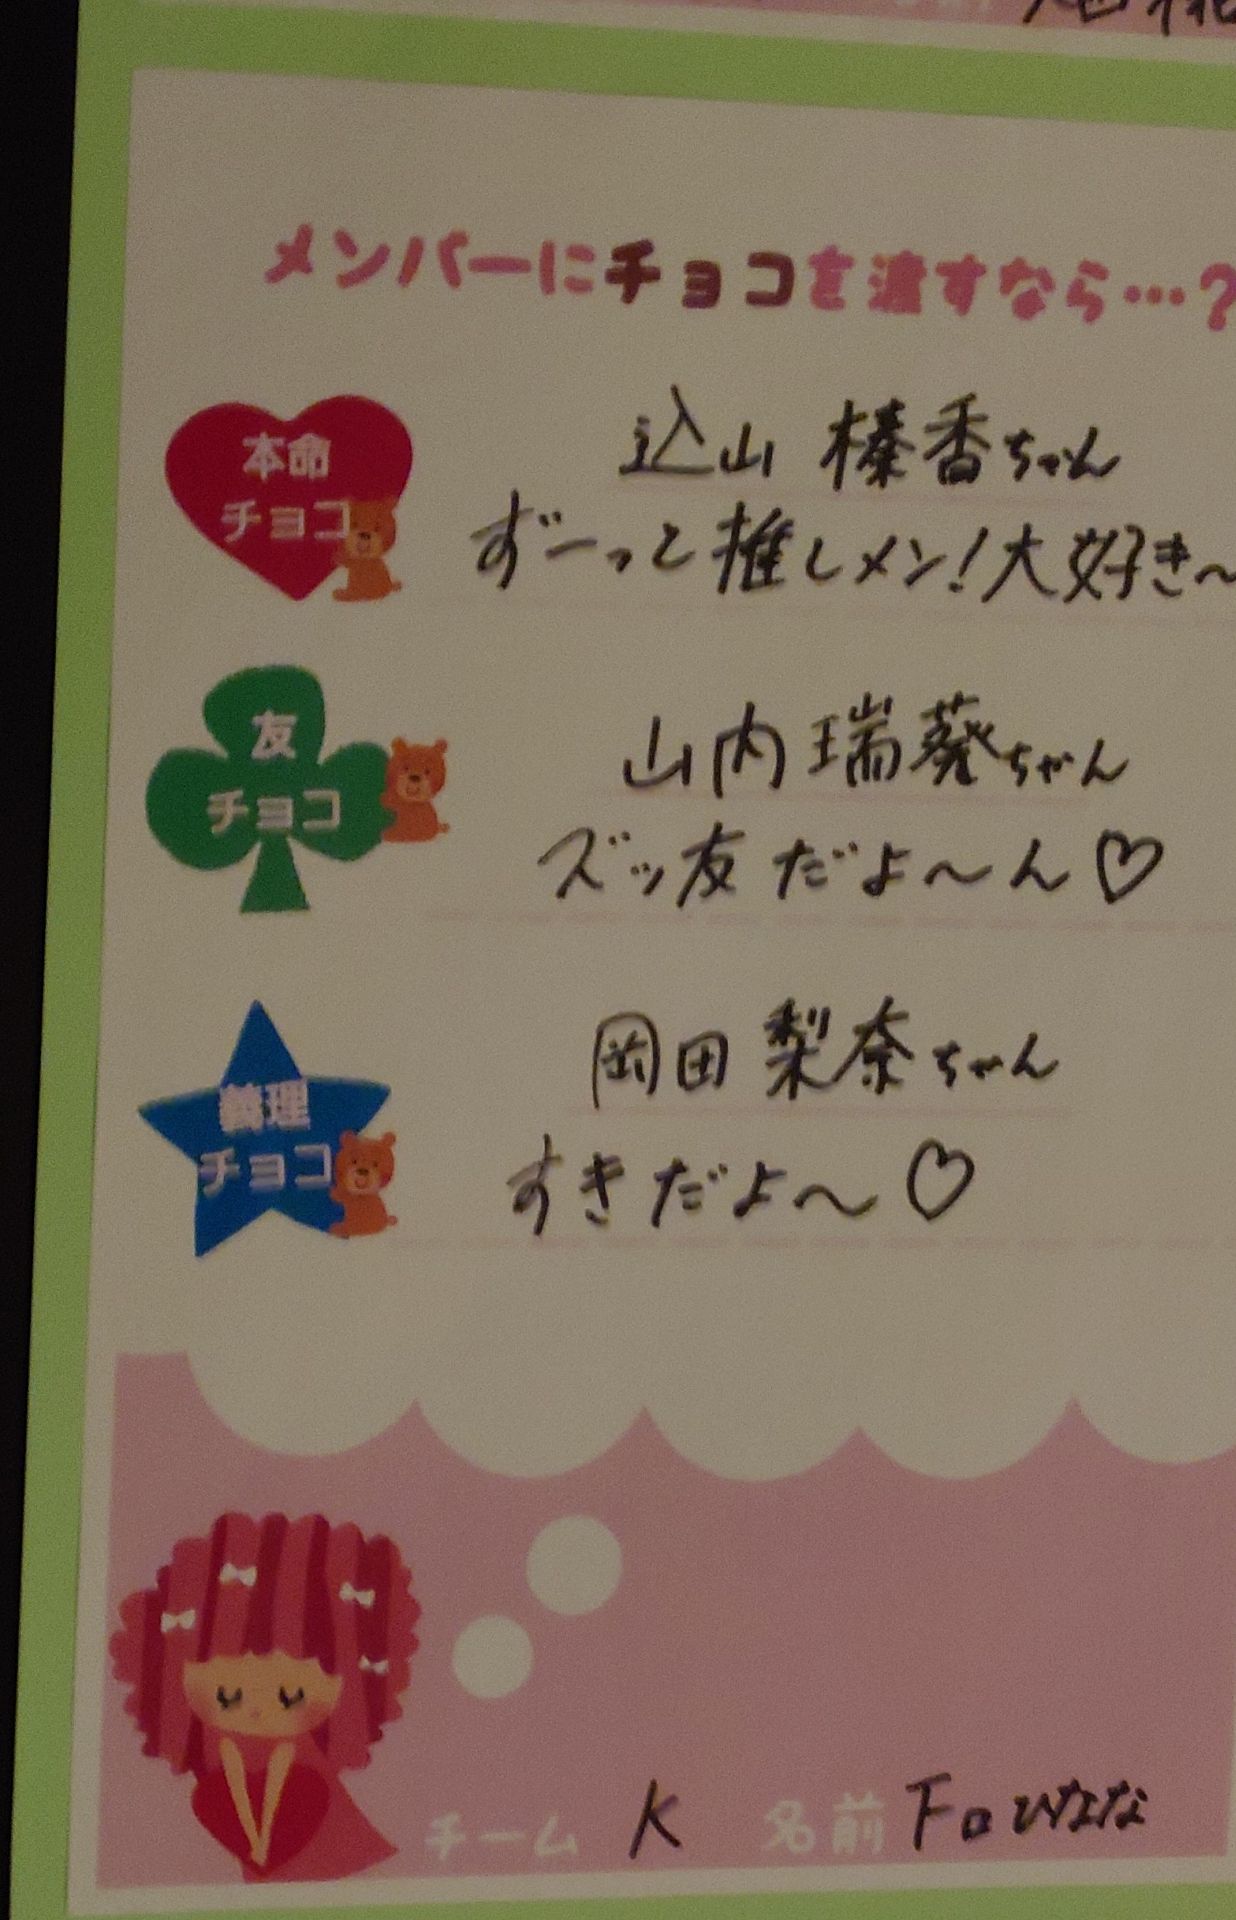 メンバーにチョコを渡すなら…?
本命
チョコ
込山 榛香ちゃん
ずーっと推しメン!大好き〜
友
チョコ
山内 瑞葵ちゃん
ズッ友だよ〜ん♡
義理
チョコ
岡田 梨奈ちゃん
すきだよ〜♡
チーム K 名前 下口ひなな